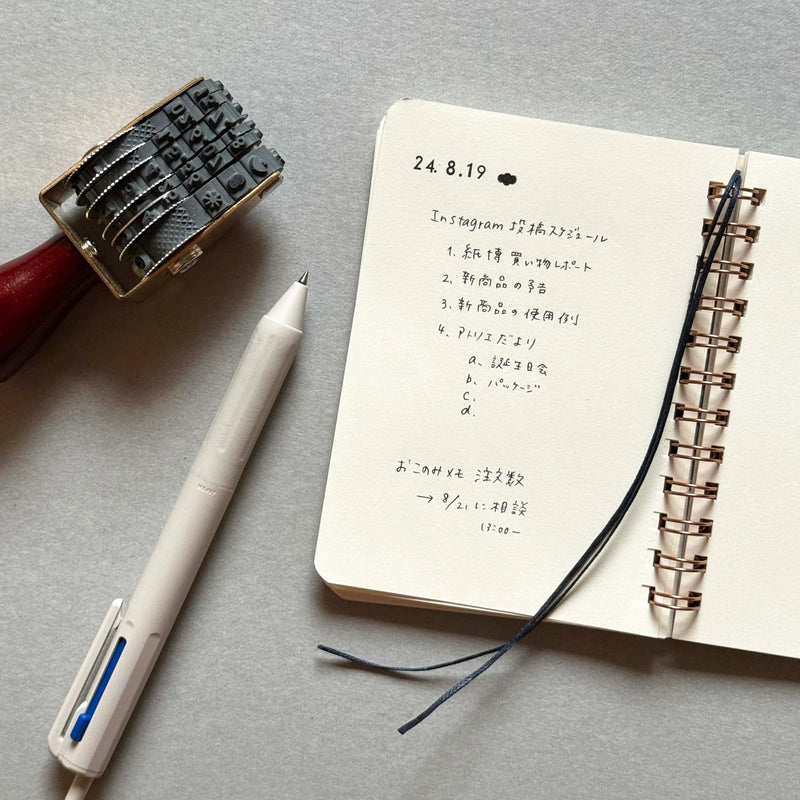 24. 8.19
Instagram 投稿スケジュール
1. 紙博 買い物レポート
2. 新商品の予告
3. 新商品の使用例
4. アトリエだより
a. 誕生日会
b. パッケージ
c.
d.
おこのみメモ 注文数
→ 8/21 に相談
13:00–